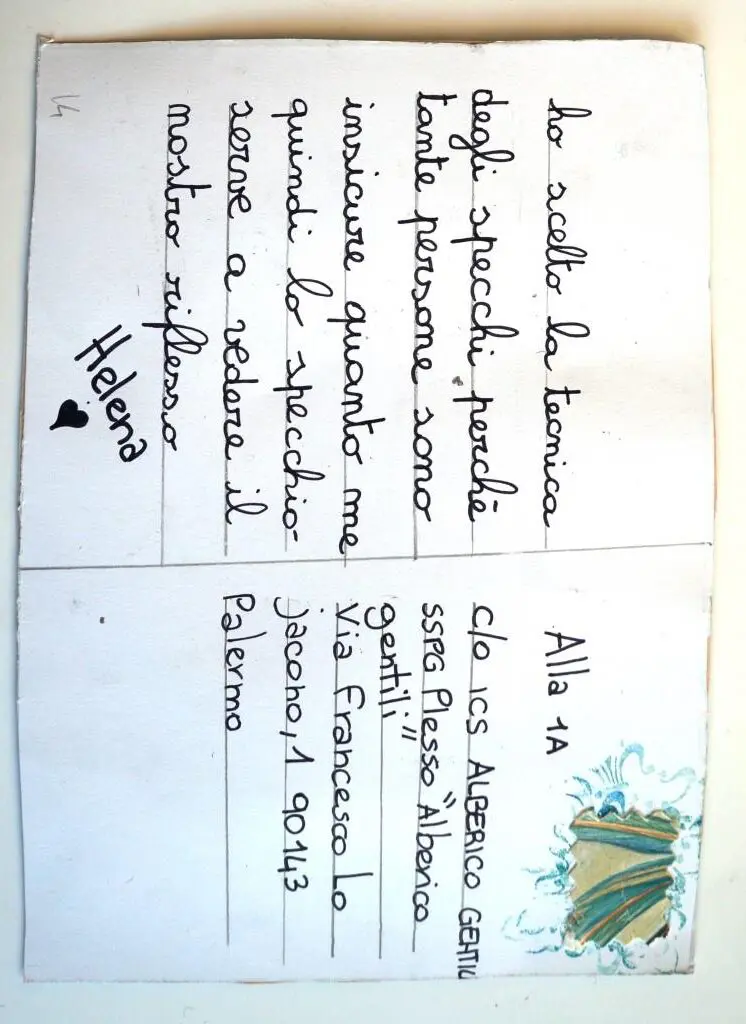 ho scelto la tecnica
degli specchi perchè
tante persone sono
insicure quanto me
quindi lo specchio
serve a vedere il
nostro riflesso
Helena
14
Alla 1A
c/o ICS ALBERICO GENTILI
SSPG Plesso "Alberico
gentili"
Via Francesco Lo
jacono, 1 90143
Palermo